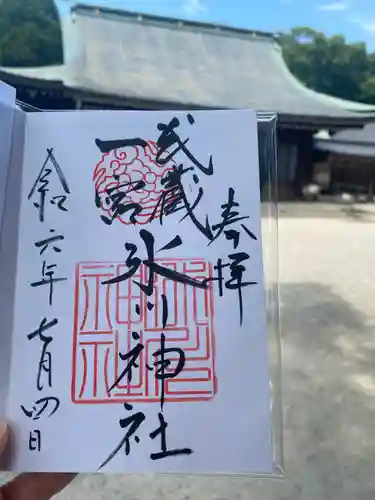 奉拝
武蔵
一宮
氷川神社
氷川
神社
令和六年七月四日